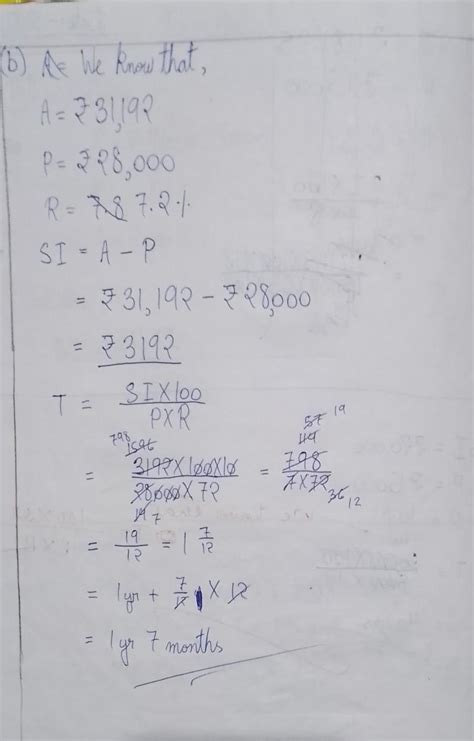 (b) We know that,
A = ₹31,192
P = ₹28,000
R = 7.2%
SI = A - P
= ₹31,192 - ₹28,000
= ₹3192
T = SI×100 / P×R
798 1596 57 19
119
= 3192×100×10 / 28000×72 = 798 / 7×72
14 7 36 12
= 19/12 = 1 7/12
= 1yr + 7/12 × 12
= 1yr 7 months